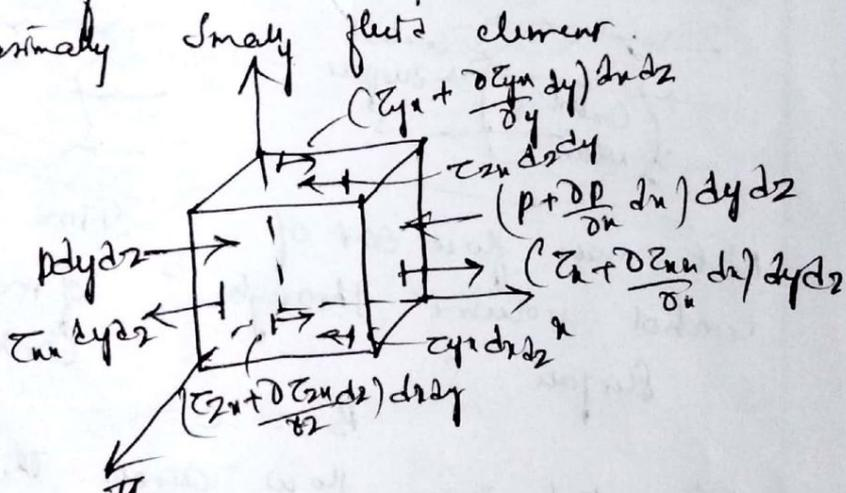 small fluid element.
(τyx + ∂τyx/∂y dy) dx dz
τzx dz dy
(p + ∂p/∂x dx) dy dz
p dy dz
(τx + ∂τxx/∂x dx) dy dz
τxx dy dz
τyx dx dz
x
(τzx + ∂τzx/∂z dz) dx dy